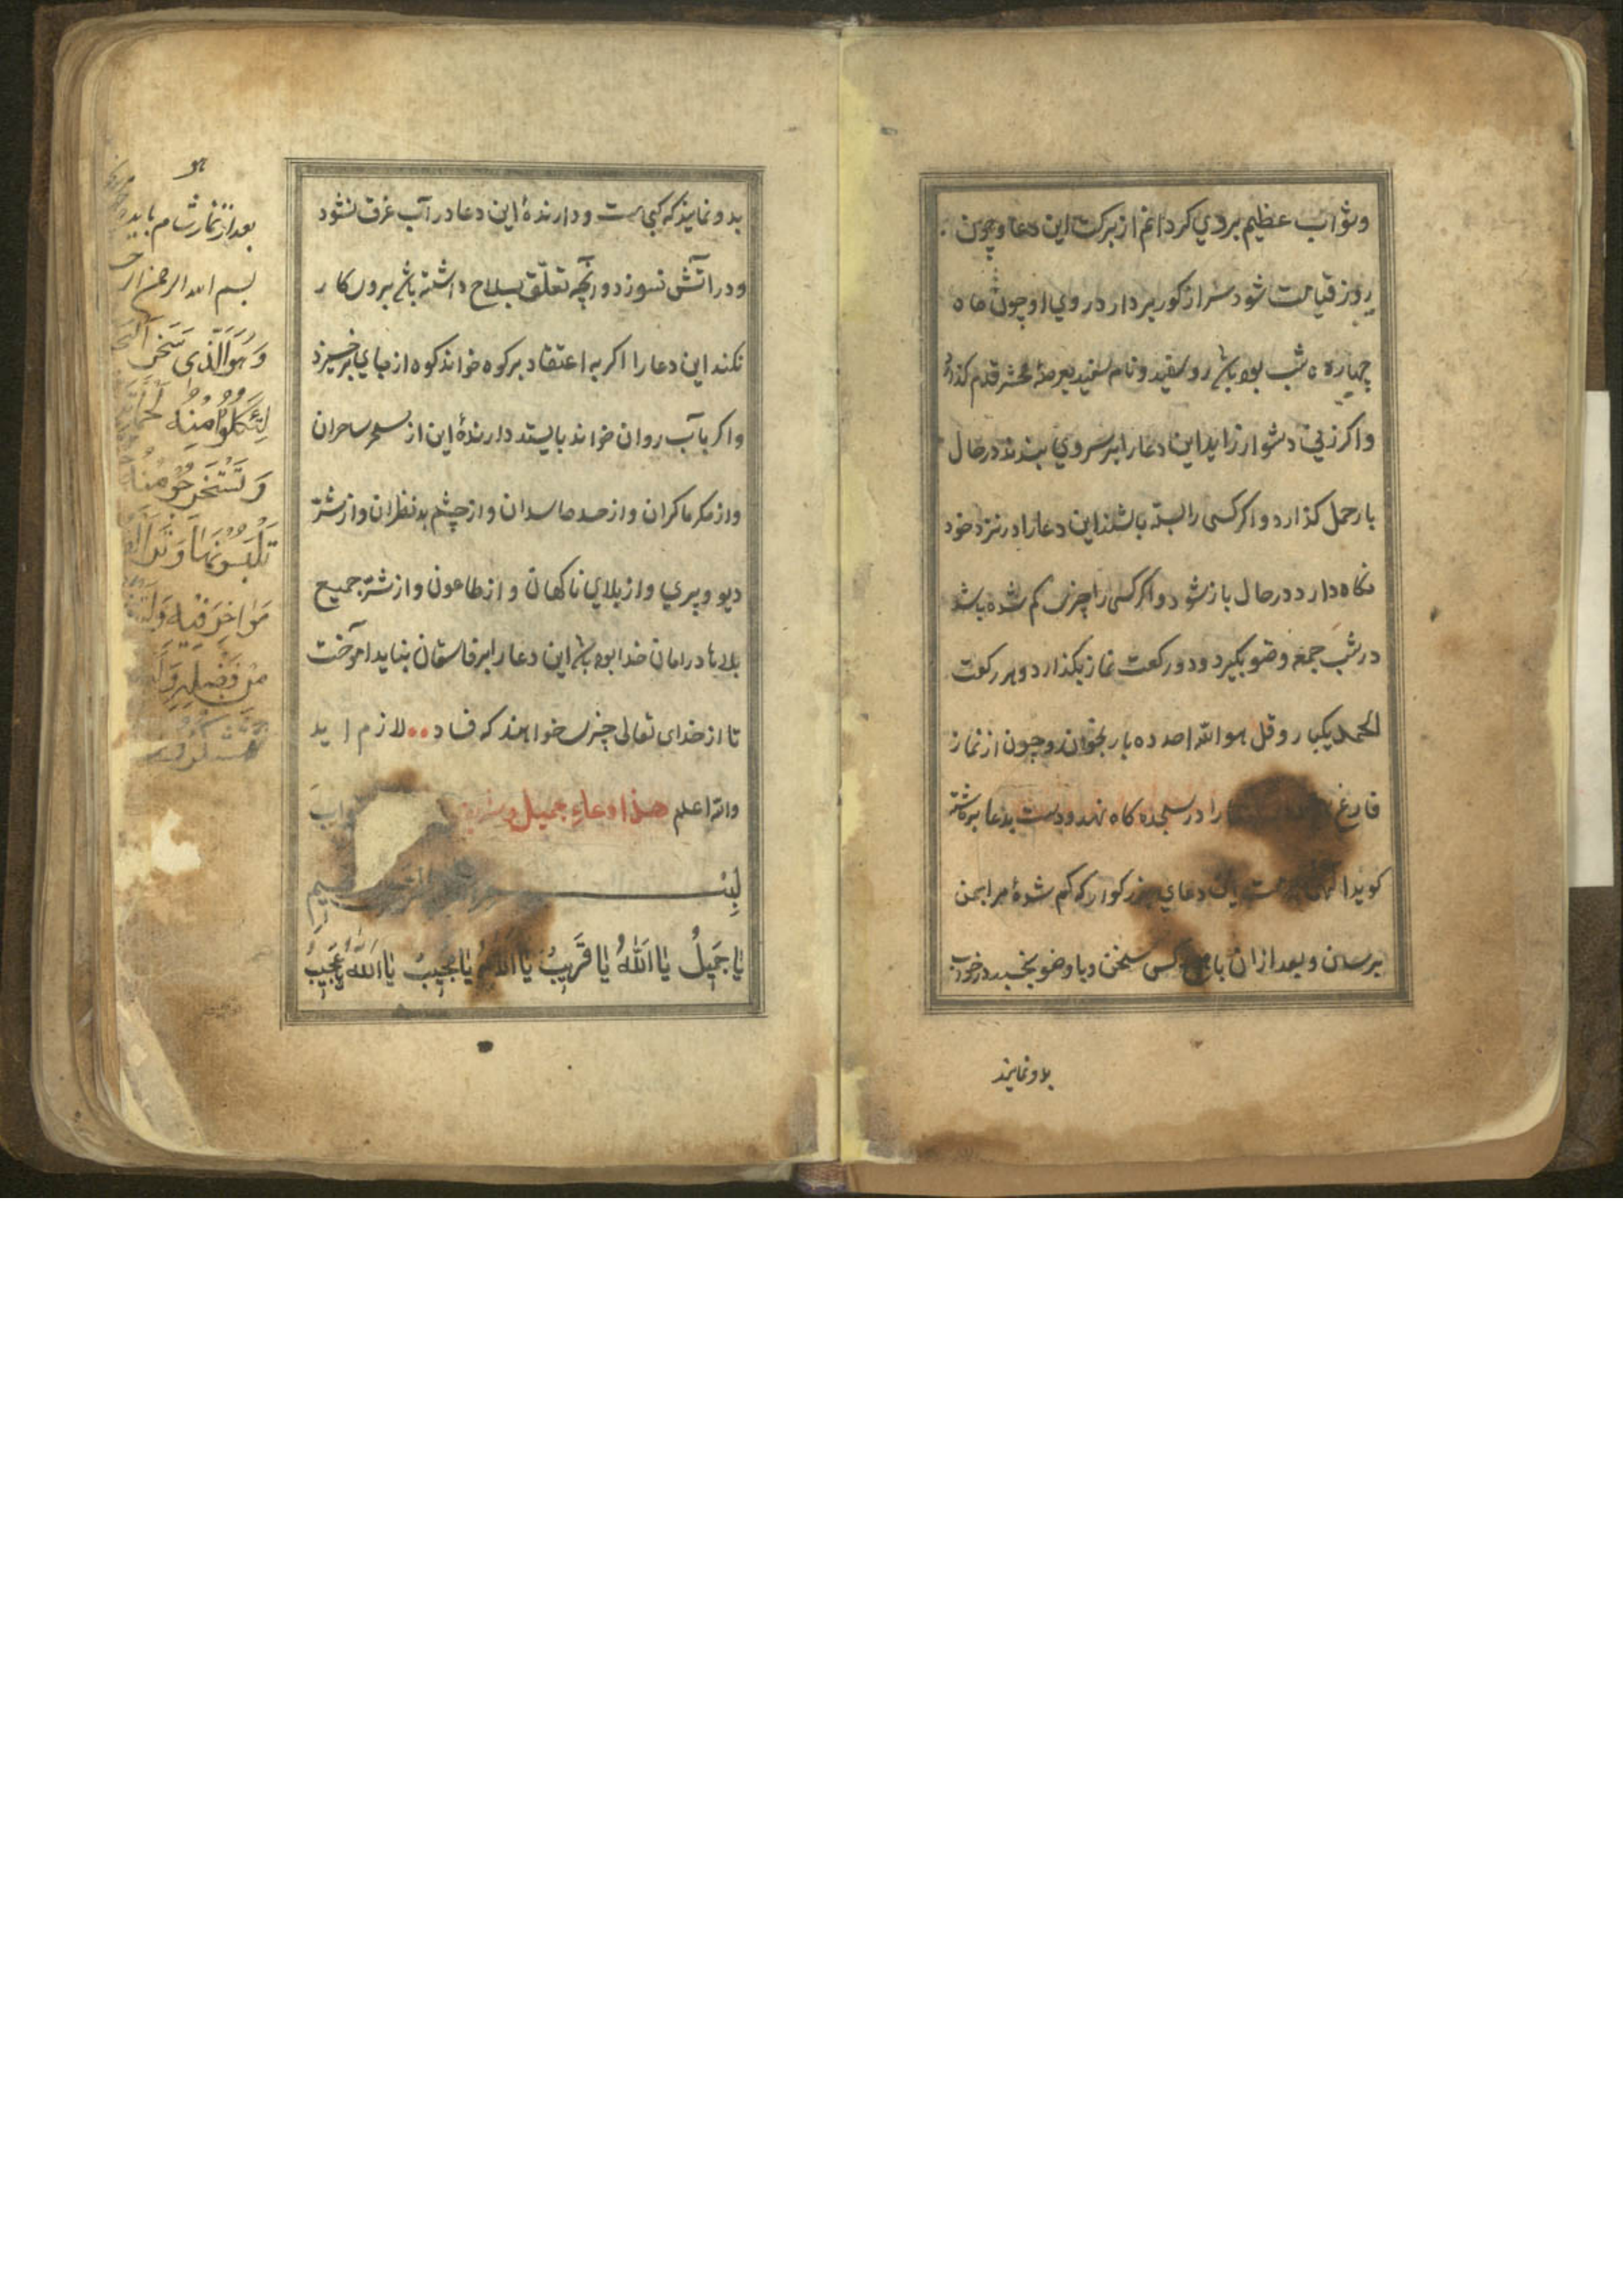 وثواب عظیم بروي کردانم از برکت این دعا وچون
روز قیامت شود سر از کور بردارد روي او چون ماه
چهارده شب بوده باشد رو سفید و نام سفید بعرصهٔ محشر قدم کذارد
واکر زني دشوار زاید این دعا را بر سر وي بندند در حال
بار حمل کذارد و اکر کسی را بسته باشند این دعا را در نزد خود
نکاه دارد در حال باز شود و اکر کسی را چیزی کم شده باشد
در شب جمعه وضو بکیرد و دو رکعت نماز بکذارد و هر رکعت
الحمد یکبار و قل هو الله احد ده بار بخواند و چون از نماز
فارغ را در سجده کاه نهد و دست بدعا برداشته
کوید این دعاي بزرکوار که کم شدهٔ مرا بمن
برسان و بعد از ان با هیچ کس سخن و با وضو بخسبد در خواب
بدو نمایند
بدو نمایند که کجی ست و دارندهٔ این دعا در آب غرق نشود
و در آتش نسوزد و آنچه تعلّق بسلاح داشته باشد برو کار
نکند این دعا را اکر به اعتقاد بر کوه خواند کوه از جاي برخیزد
و اکر بآب روان خواند بایستد دارندهٔ این از سحر ساحران
و از مکر ماکران و از حسد حاسدان و از چشم بد نظران و از شرّ
دیو و پري و از بلاي ناکهان و از طاعون و از شرّ جمیع
بلاها در امان خدا بوده باشد این دعا را بر فاسقان نباید آموخت
تا از خدای تعالی چیزی خواهند که فساد لازم اید
والله اعلم هذا دعاء جمیل
بسم
یا جَمیلُ یا اَللّٰهُ یا قَریبُ یا اَللّٰهُ یا مُجیبُ یا اَللّٰهُ یا عَجیبُ
هو
بعد از نماز شام باید
بسم الله الرحمن الر
وَهُوَ الَّذی سَخَّرَ
لِتَأکُلُوا مِنْهُ لَحْمًا
وَتَسْتَخْرِجُوا مِنْهُ
تَلْبَسُونَهَا وَتَرَی
مَوَاخِرَ فِیهِ
مِن فَضْلِهِ
تَشْکُرُونَ